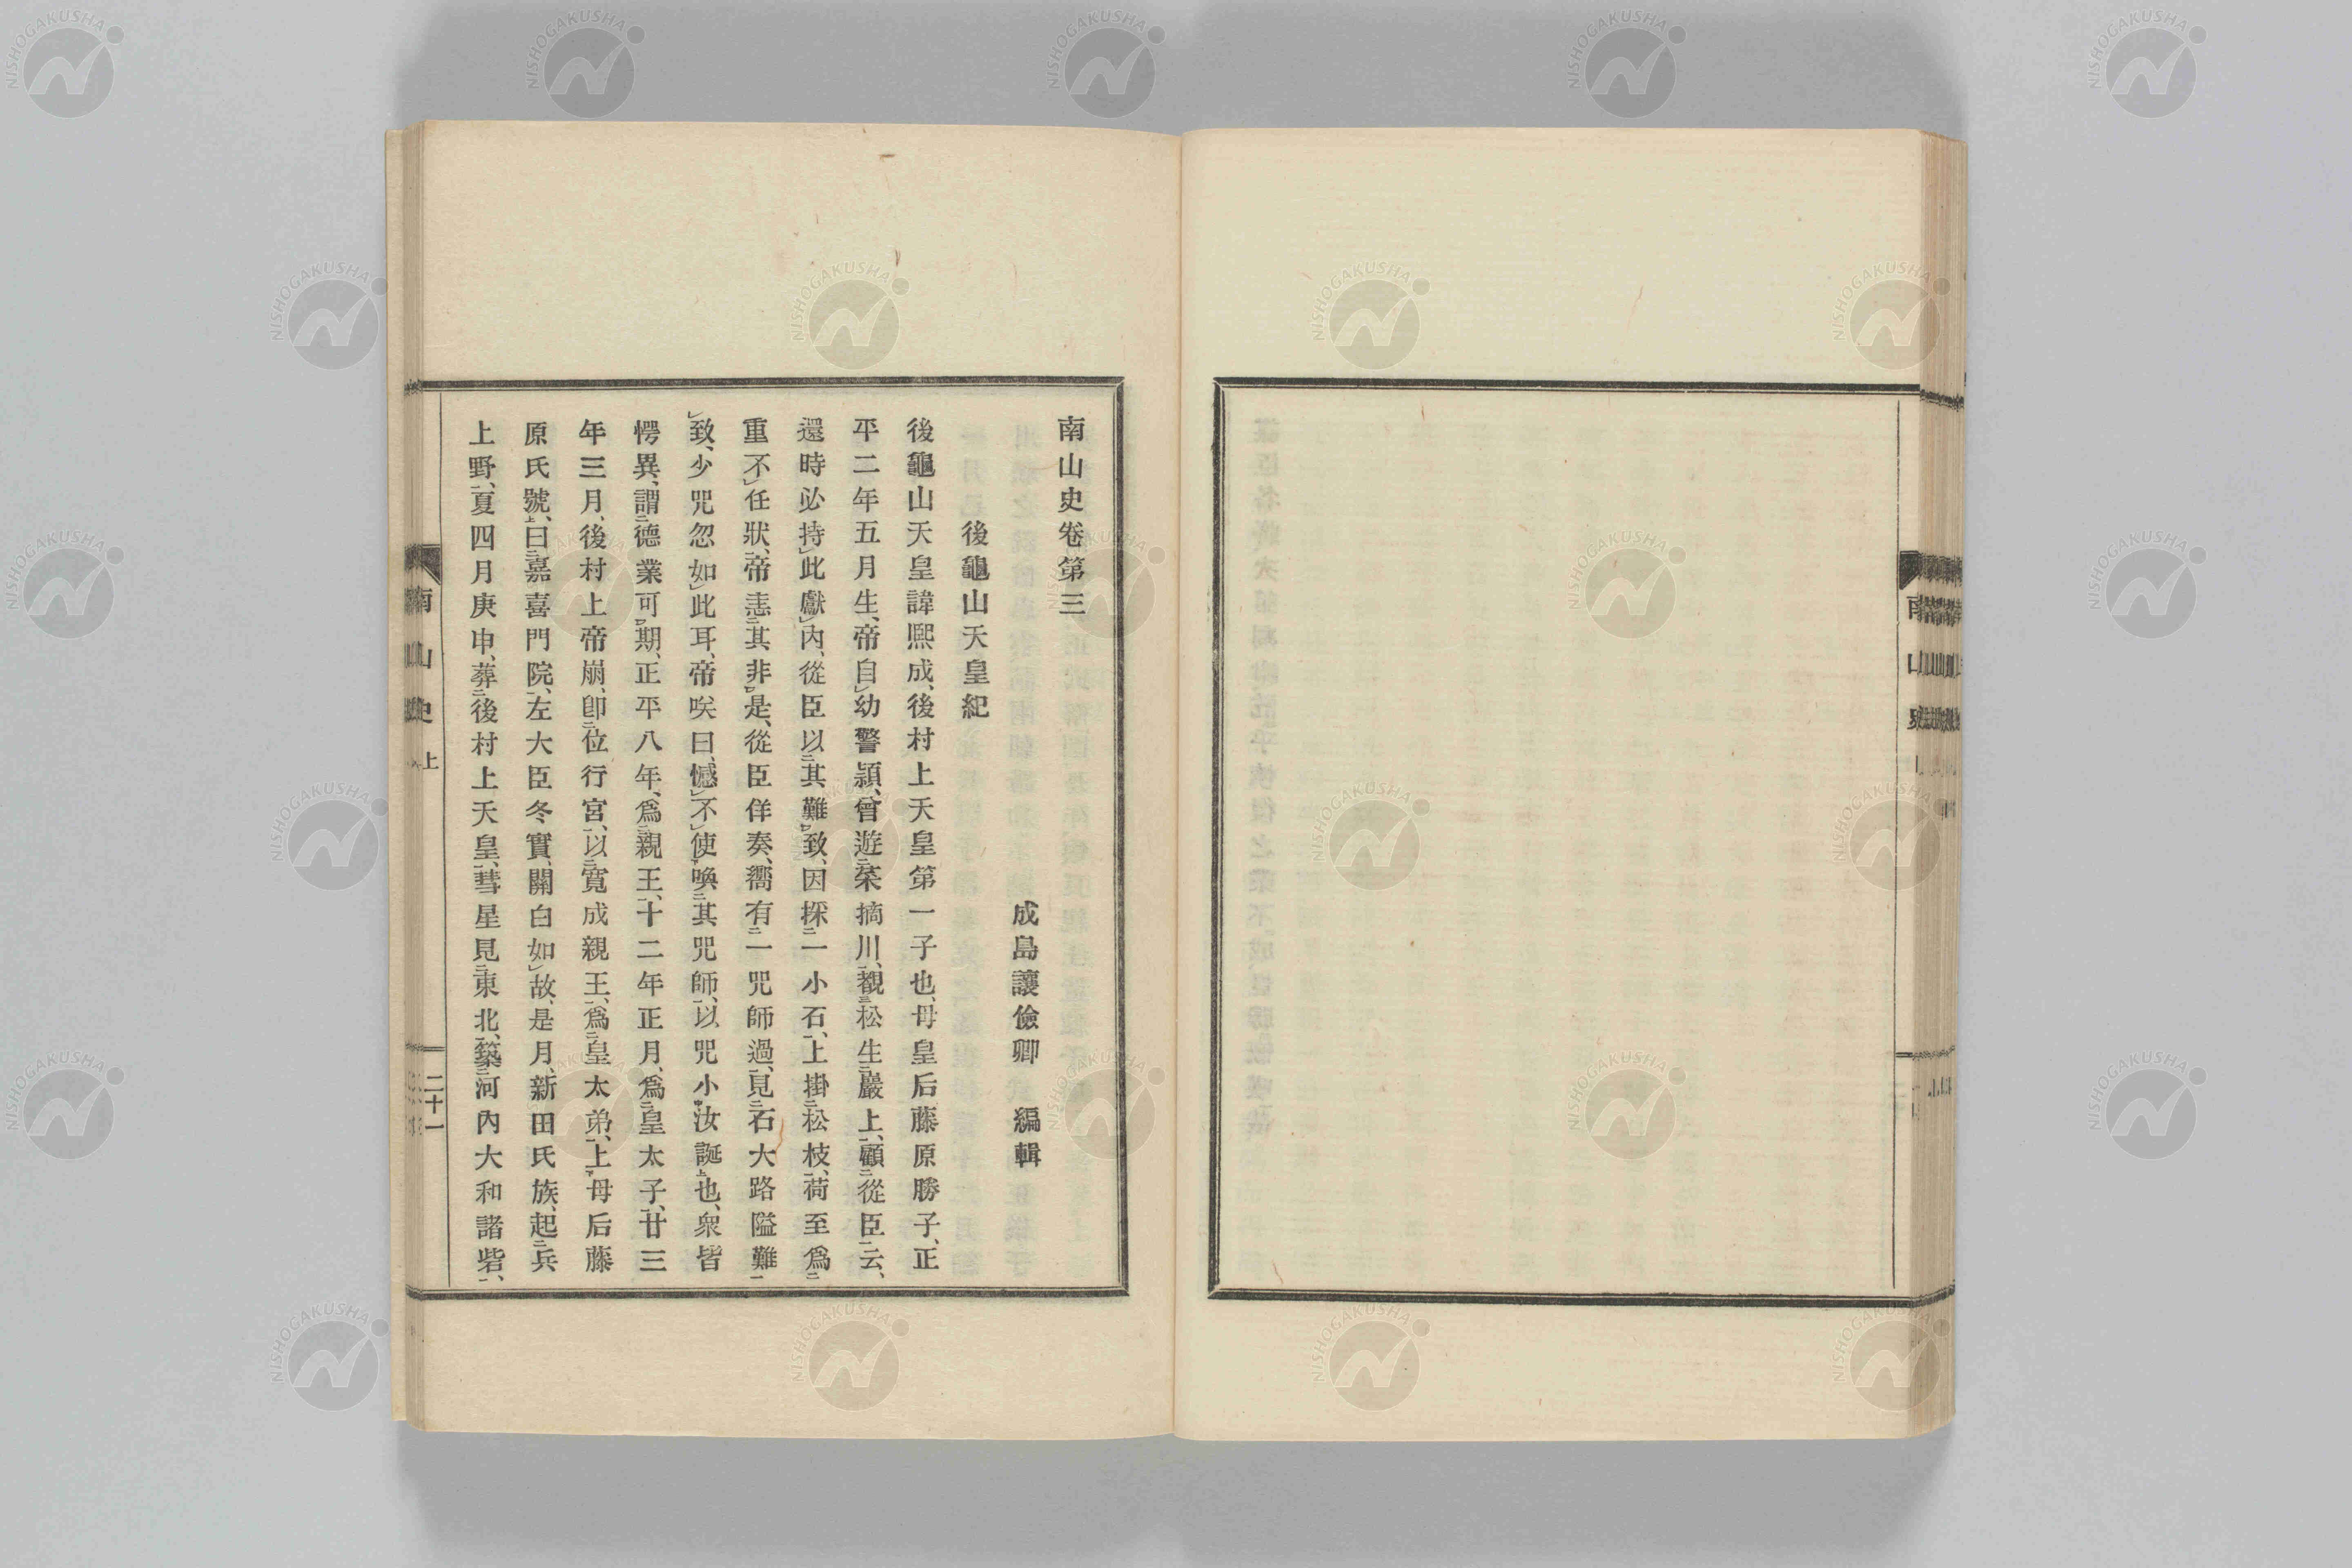 南山史卷第三
成島讓儉卿 編輯
後龜山天皇紀
後龜山天皇諱熙成、後村上天皇第一子也、母皇后藤原勝子、正
平二年五月生、帝自幼警頴、曾遊菜摘川、覩松生巖上、顧從臣云、
還時必持此獻內、從臣以其難致、因探一小石、上掛松枝、荷至爲
重不任狀、帝恚其非是、從臣佯奏、嚮有一咒師過、見石大路隘難
致、少咒忽如此耳、帝咲曰、憾不使喚其咒師、以咒小汝誕也、衆皆
愕異、謂德業可期、正平八年、爲親王、十二年正月、爲皇太子、廿三
年三月、後村上帝崩、卽位行宮、以寬成親王、爲皇太弟、上母后藤
原氏號、曰嘉喜門院、左大臣冬實、關白如故、是月、新田氏族、起兵
上野、夏四月庚申、葬後村上天皇、彗星見東北、築河內大和諸砦、
南山史 上
二十一
NISHOGAKUSHA